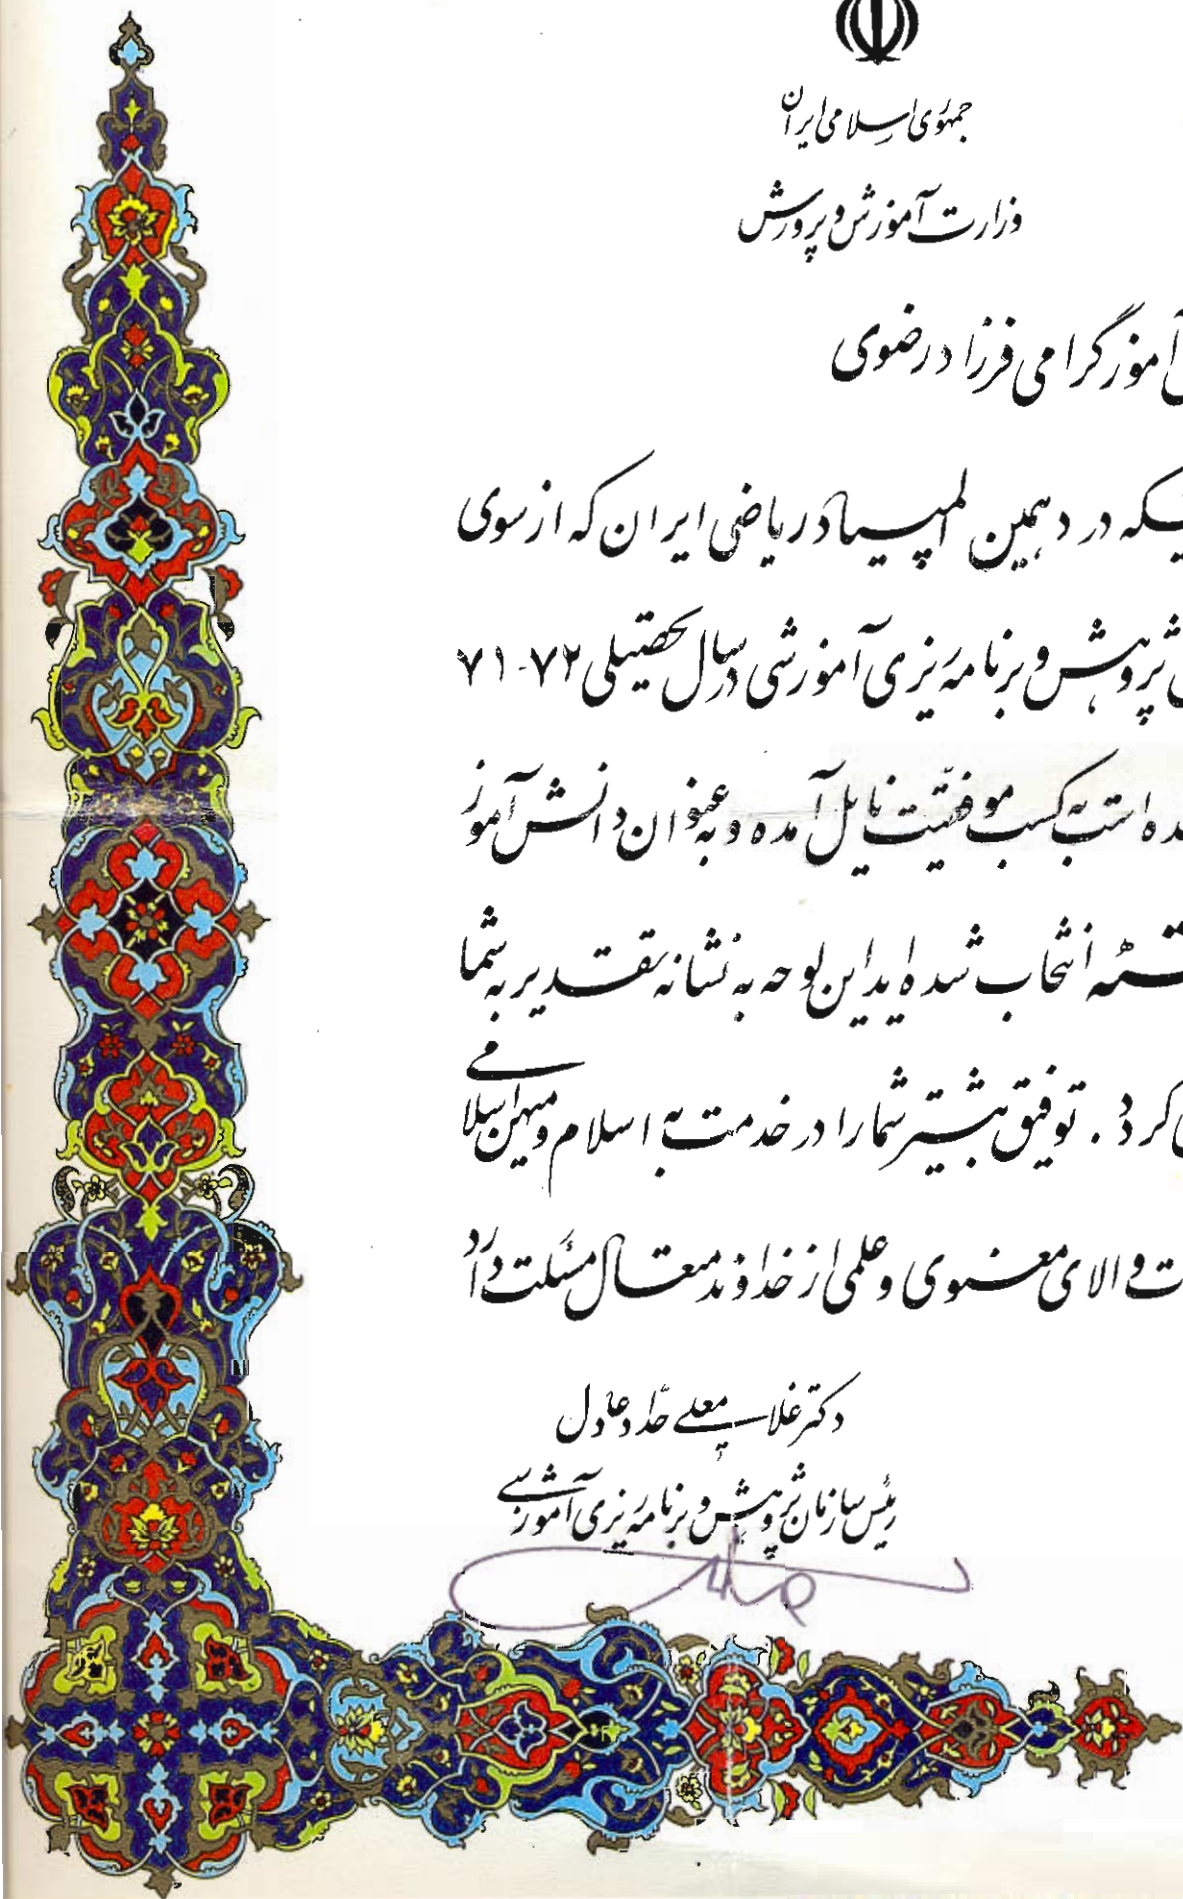 جمهوری اسلامی ایران
وزارت آموزش و پرورش
آموز گرامی فرزاد رضوی
در دهمین المپیاد ریاضی ایران که از سوی
پژوهش و برنامه‌ریزی آموزشی در سال تحصیلی ۷۲-۷۱
است به کسب موفقیت نایل آمده و به عنوان دانش آموز
انتخاب شده اید این لوحه به نشانه تقدیر به شما
توفیق بیشتر شما را در خدمت به اسلام و میهن اسلامی
والای معنوی و علمی از خداوند متعال مسئلت دارد
دکتر غلامعلی حداد عادل
رئیس سازمان پژوهش و برنامه‌ریزی آموزشی